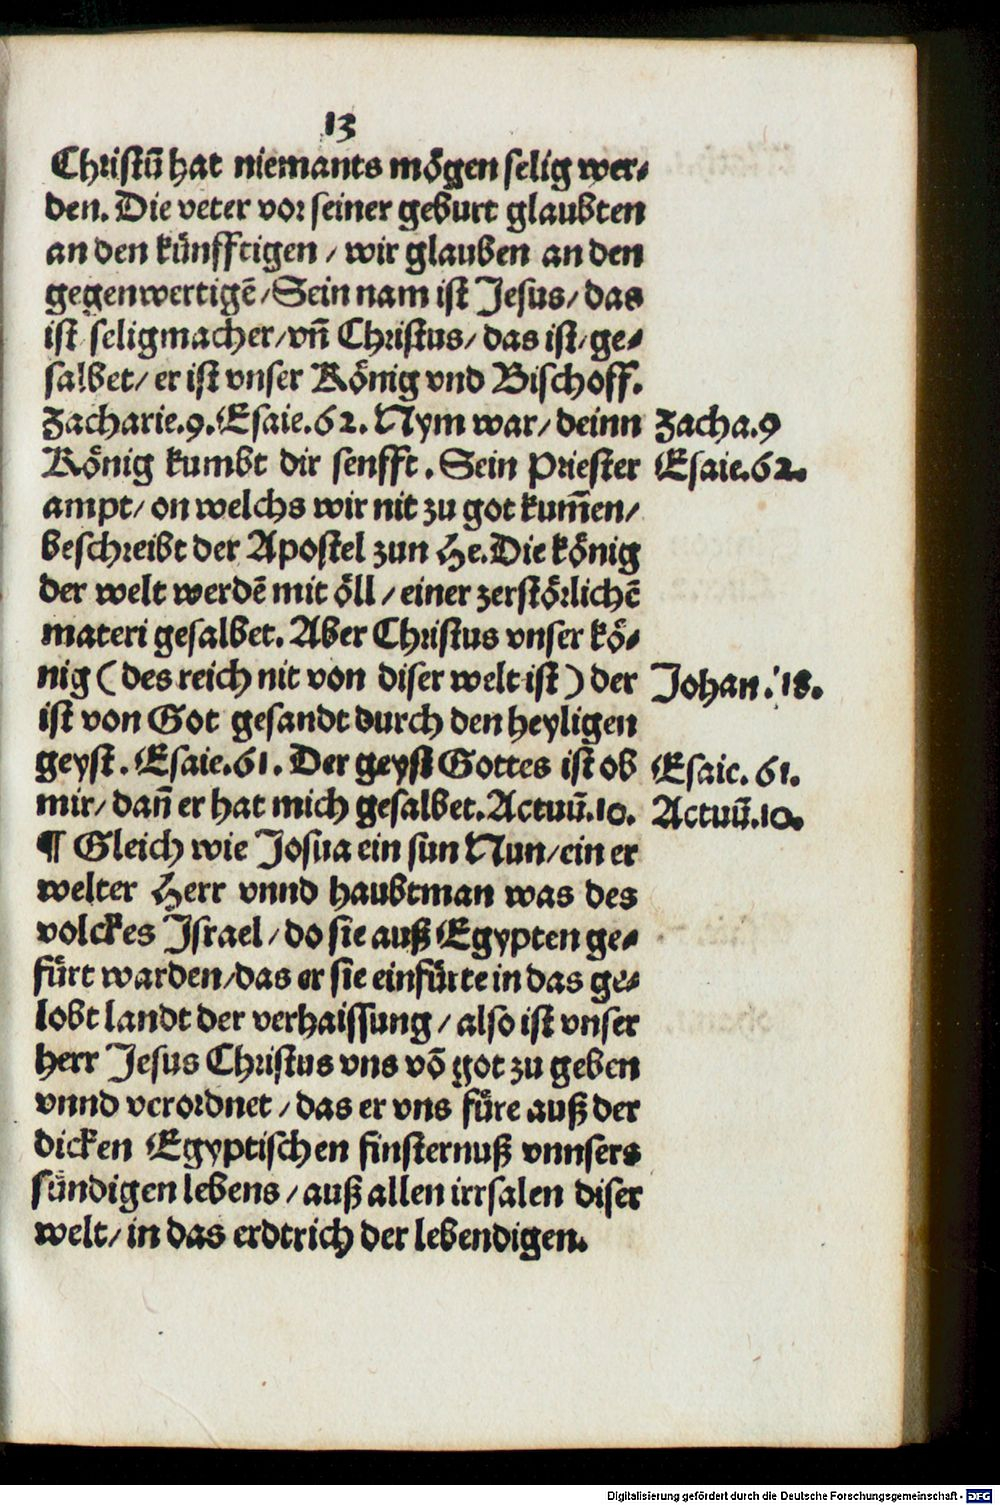 13
Christū hat niemants mögen selig wer-
den. Die veter vor seiner geburt glaubten
an den künfftigen / wir glauben an den
gegenwertigē / Sein nam ist Jesus / das
ist seligmacher / vñ Christus / das ist / ge-
salbet / er ist vnser König vnd Bischoff.
Zacharie.9. Esaie.62. Nym war / deinn Zacha.9
König kumbt dir senfft. Sein Priester Esaie.62.
ampt / on welchs wir nit zu got kum̄en /
beschreibt der Apostel zun He. Die könig
der welt werdē mit öll / einer zerstörlichē
materi gesalbet. Aber Christus vnser kö-
nig (des reich nit von diser welt ist) der Johan. 18.
ist von Got gesandt durch den heyligen
geyst. Esaie.61. Der geyst Gottes ist ob Esaie. 61.
mir / dañ er hat mich gesalbet. Actuū.10. Actuū.10.
¶ Gleich wie Josua ein sun Nun / ein er
welter Herr vnnd haubtman was des
volckes Israel / do sie auß Egypten ge-
fürt warden / das er sie einfürte in das ge-
lobt landt der verhaissung / also ist vnser
herr Jesus Christus vns vō got zu geben
vnnd verordnet / das er vns füre auß der
dicken Egyptischen finsternuß vnnsers
sündigen lebens / auß allen irrsalen diser
welt / in das erdtrich der lebendigen.
Digitalisierung gefördert durch die Deutsche Forschungsgemeinschaft - DFG